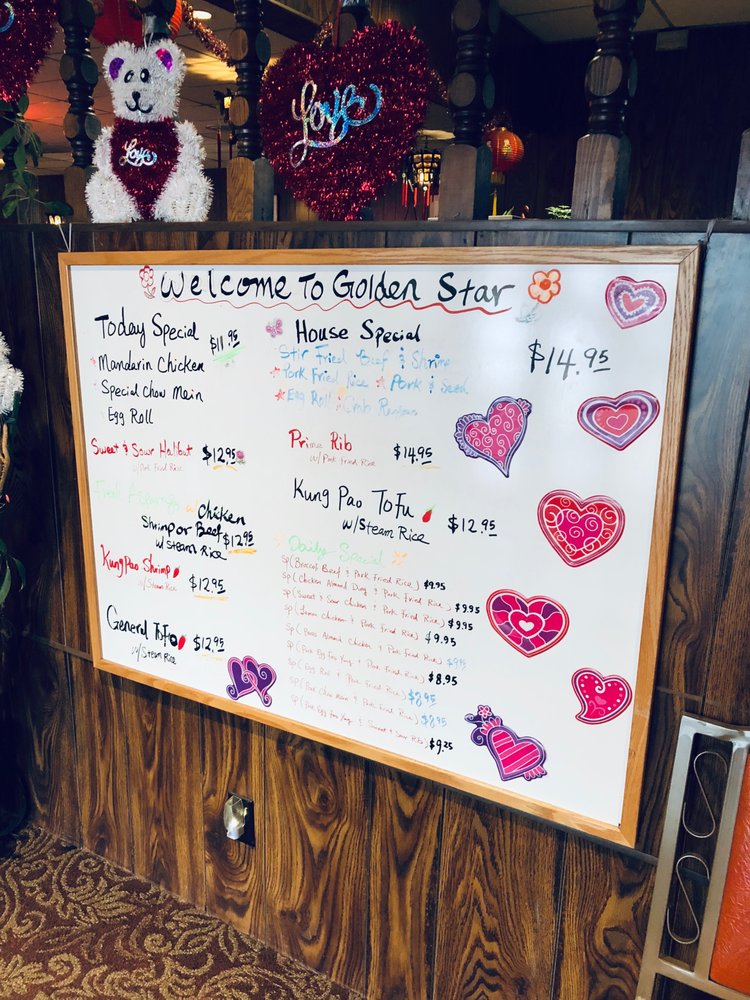 Love
Love
Welcome To Golden Star
Today Special $11.95
Mandarin Chicken
Special Chow Mein
Egg Roll
Sweet & Sour Halibut $12.95
w/Pork Fried Rice
Fresh Asparagus w/ Chicken
Shrimp or Beef $12.95
w/ Steam Rice
Kung Pao Shrimp $12.95
w/Steam Rice
General Tofu $12.95
w/Steam Rice
House Special $14.95
Stir Fried Beef & Shrimp
Pork Fried Rice Pork & Seed
Egg Roll Crab
Prime Rib $14.95
w/Pork Fried Rice
Kung Pao Tofu $12.95
w/Steam Rice
Daily Special
SP (Broccoli Beef & Pork Fried Rice) $9.95
SP (Chicken Almond Ding & Pork Fried Rice) $9.95
SP (Sweet & Sour Chicken & Pork Fried Rice) $9.95
SP (Lemon Chicken & Pork Fried Rice) $9.95
SP (Almond Chicken & Pork Fried Rice) $9.95
SP (Pork Egg Foo Yung & Pork Fried Rice) $8.95
SP (Egg Roll & Pork Fried Rice) $8.95
SP (Pork Chow Mein & Pork Fried Rice) $8.95
SP (Pork Egg Foo Yung & Sweet & Sour Ribs) $9.25